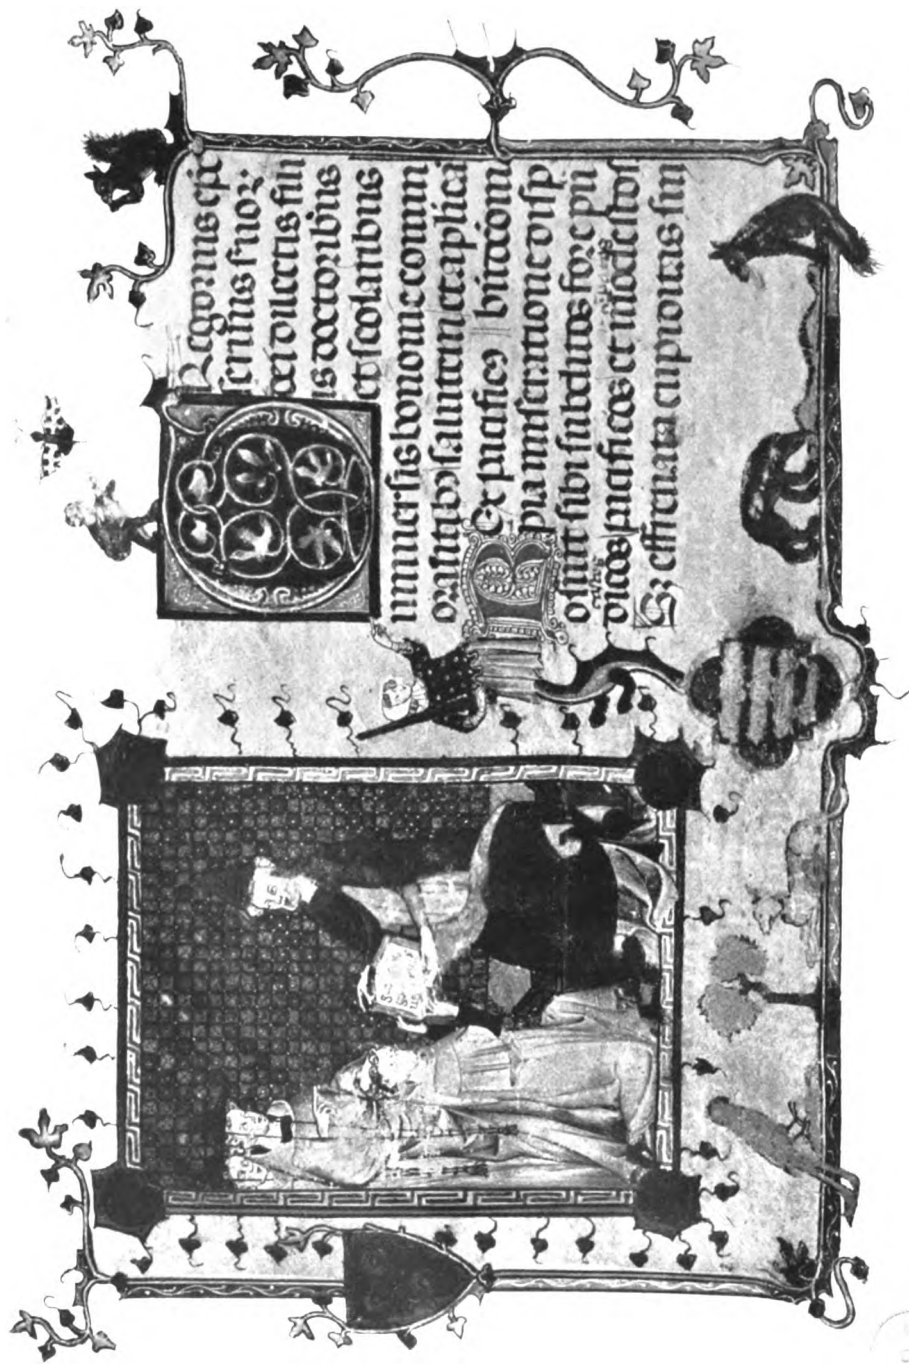 Regorius epc
seruus suoꝝ
dei dilectis fili
is doctoribus
et scolaribus
uniuersis bononie comm
orantibꝫ salutem et aplica
REx pacificꝰ bndictioni
pia miseratione disp
osuit sibi subditos fore pu
dicos pacificos et modestos
Sꝫ effrenata cupiditas sui